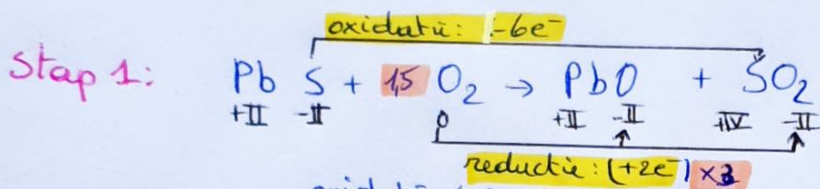 oxidatie: -6e⁻
Stap 1: Pb S + 1,5 O₂ → PbO + SO₂
+II -II 0 +II -II +IV -II
reductie: (+2e⁻) x3